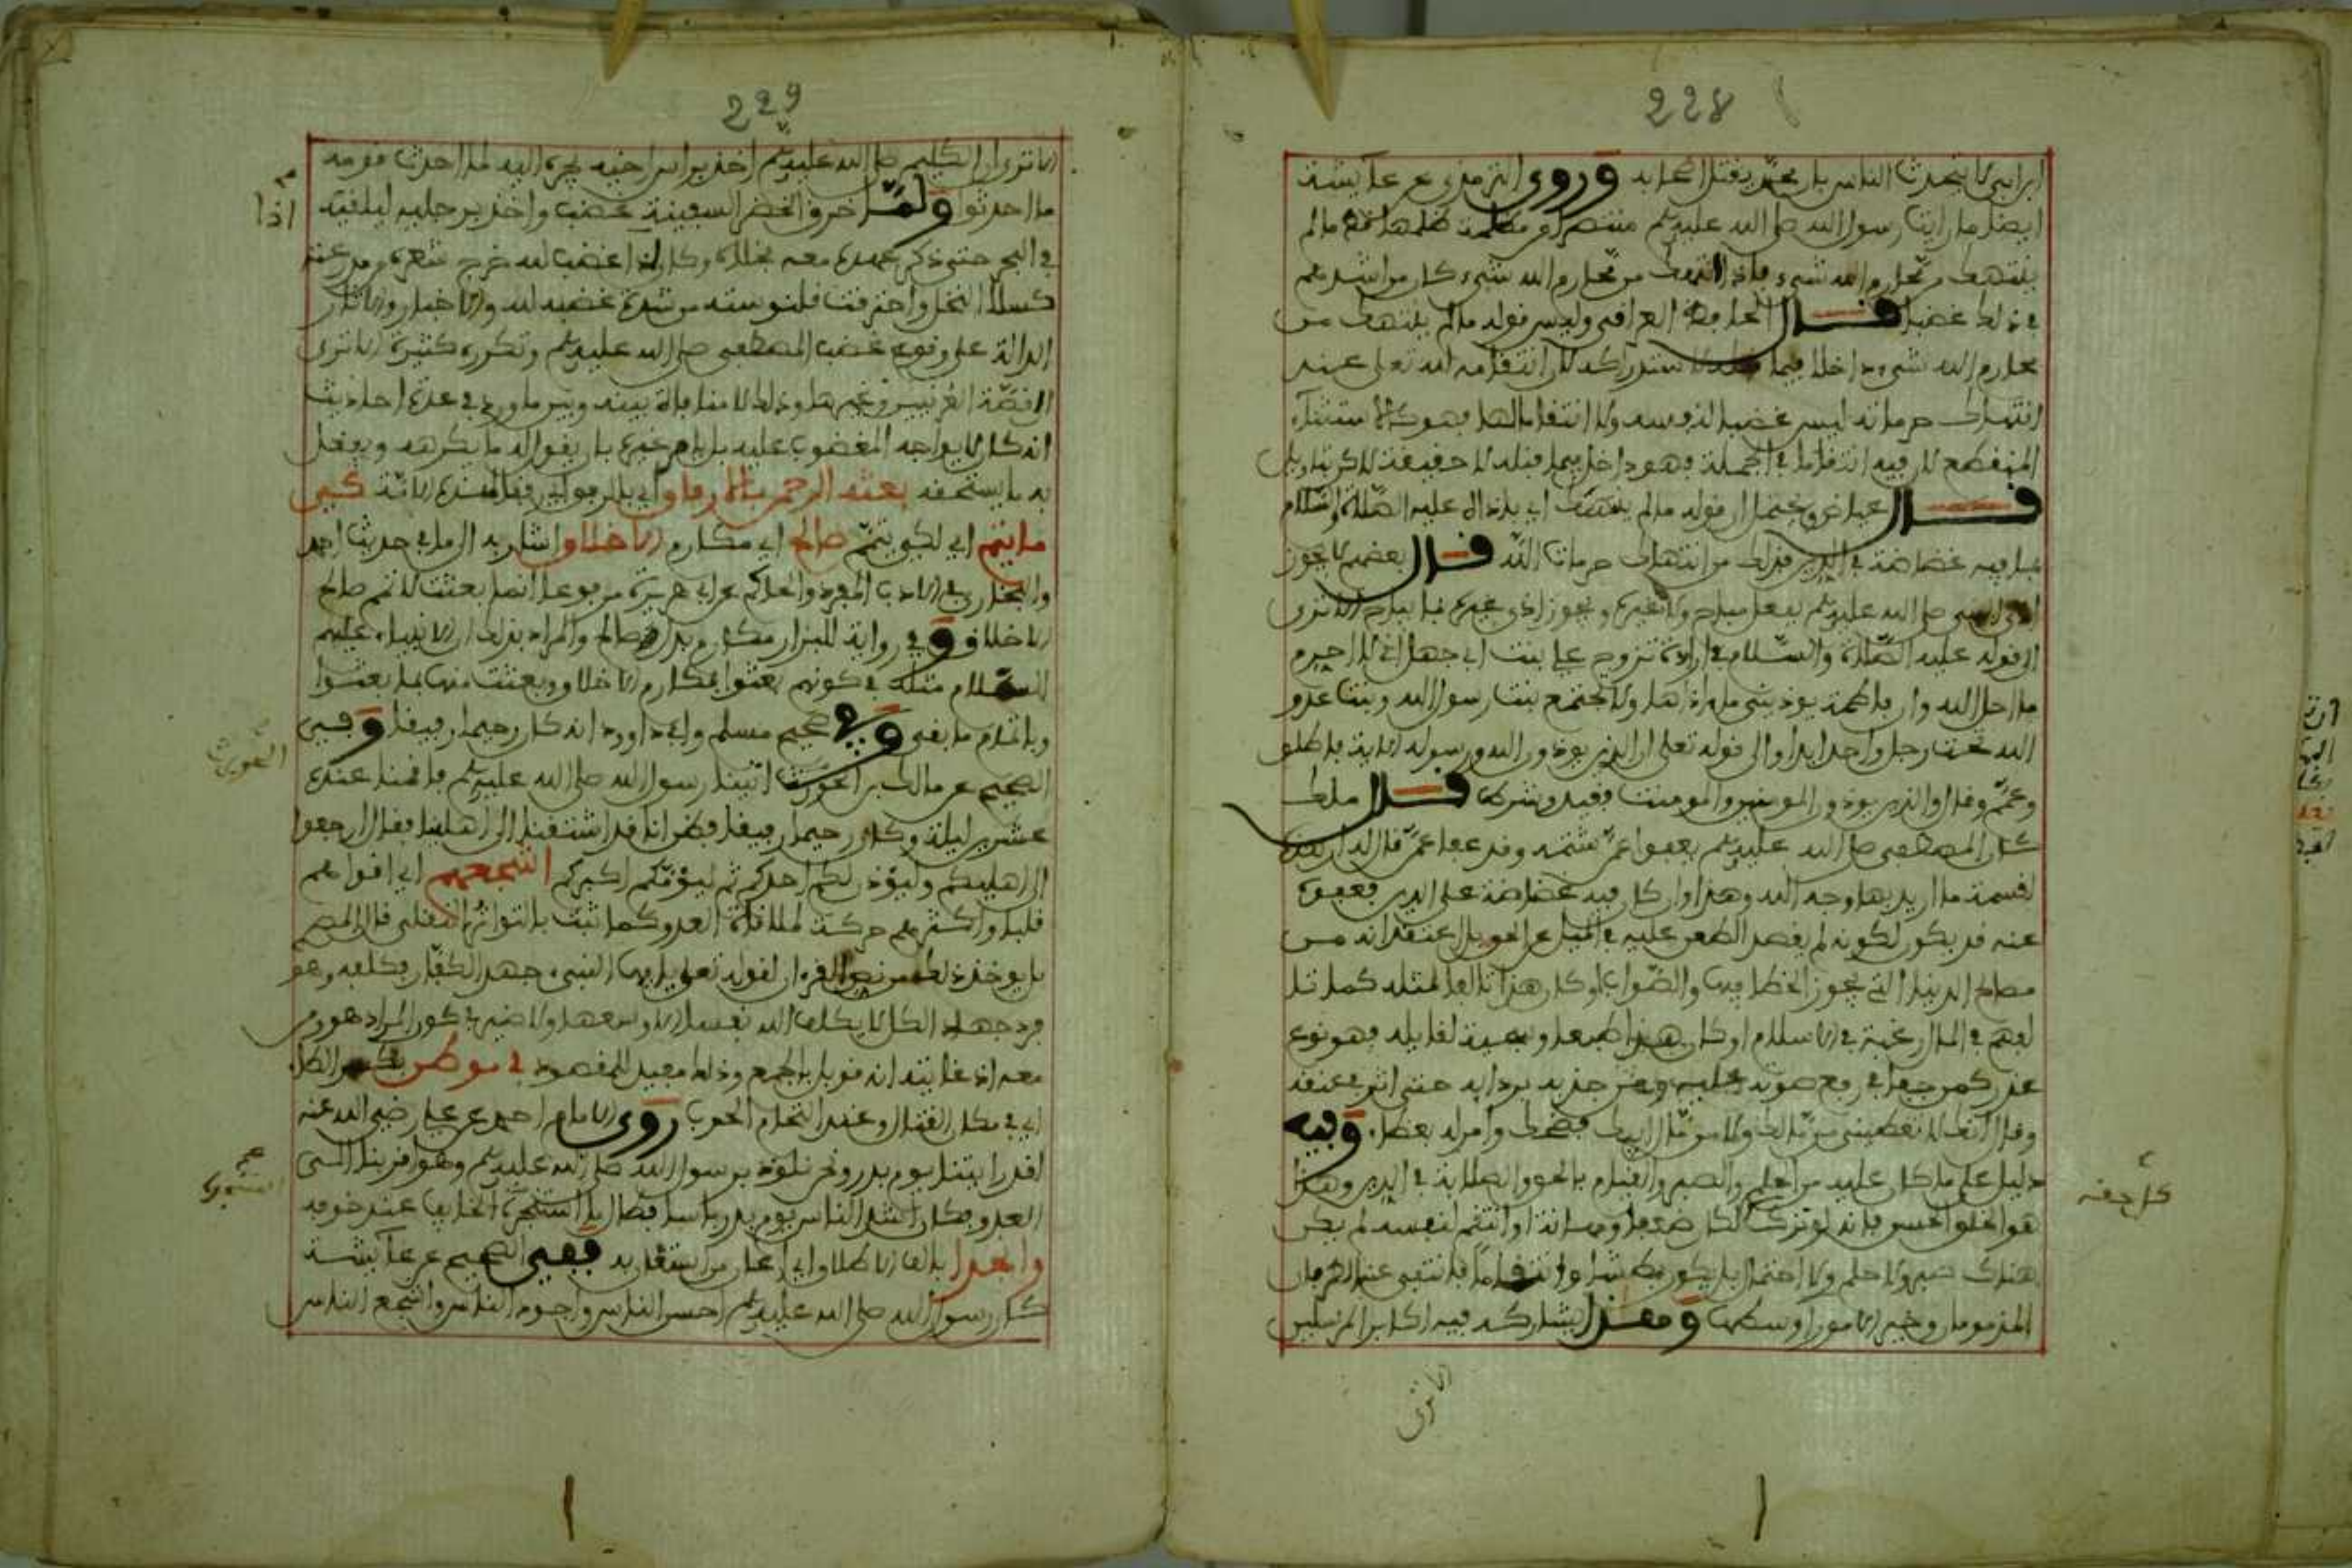 228
ابن ابي لا يتحدث الناس بان محمدا يقتل اصحابه وروى الترمذي عن عائشة
ايضا ما رايت رسول الله صلى الله عليه وسلم منتصرا من مظلمة ظلمها قط ما لم
ينتهك من محارم الله شيء فاذا انتهك من محارم الله شيء كان من اشدهم
في ذلك غضبا قال الحافظ العراقي وليس قوله ما لم ينتهك من
محارم الله شيء داخلا فيما قبله لا ستدراكه لان انتقامه لله تعالى عند
انتهاك حرماته ليس غضبا لنفسه ولا انتقاما لها فهو كالاستثناء
المنقطع لان فيه انتقاما في الجملة فهو داخل فيما قبله لا حقيقة لاكن تاويلا
قال عياض ويحتمل ان قوله ما لم ينتهك اي باذاه عليه الصلاة والسلام
بما فيه غضاضة في الدين فذلك من انتهاك حرمات الله قال بعضهم لا يجوز
اذى النبي صلى الله عليه وسلم بفعل مباح ولا غيره ويجوز اذى غيره بما يباح الا ترى
الى قوله عليه الصلاة والسلام في ارادة تزوج علي بنت ابي جهل اني لا احرم
ما احل الله وان فاطمة يوذيني ما اذاها ولا تجتمع بنت رسول الله وبنت عدو
الله تحت رجل واحد ابدا والى قوله تعالى ان الذين يوذون الله ورسوله الاية فاطلق
وعمم وقال والذين يوذون المومنين والمومنت فقيد وشرط قال ملك
كان المصطفى صلى الله عليه وسلم يعفو عمن شتمه وقد عفا عمن قال له ان هذه
لقسمة ما اريد بها وجه الله وهذا وان كان فيه غضاضة على الدين فعفوه
عنه قد يكون لكونه لم يقصد الطعن عليه في الميل عن الحق بل اعتقد انه من
مصالح الدنيا التي يجوز الخطا فيها والصواب او كان هذا تالفا لمثله كما تا
لفهم في المال رغبة في الاسلام او كان هذا طبعا وسجية لقايله فهو نوع
عذر كمن جفا في رفع صوته عليه ومن جذبه بردايه حتى اثر في عنقه
وقال انك لا تعطيني من مالك ولا من مال ابيك فضحك وامر له بعطاء وفيه
دليل على ما كان عليه من الحلم والصبر والقيام بالحق والصلابة في الدين وهذا
هو الخلق الحسن فانه لو ترك الكل كان ضعفا ومهانة او انتقم لنفسه لم يكن
هناك صبر ولا حلم ولا احتمال بل يكون بطشا وانتقاما فانتفى عنه الطرفان
المذمومان وخير الامور اوسطها ومعذا يشاركه فيه اكابر المرسلين
الا ترى
229
الا ترى ان الكليم صلى الله عليه وسلم اخذ براس اخيه يجره اليه لما احدث قومه
ما احدثوا ولما خرق الخضر السفينة غضب واخذ برجليه ليلقيه
في البحر حتى ذكر عهده معه فخلاه وكان اذا غضب لله خرج شعره من مدرعته
كسلاء النخل واحترقت قلنوسته من شدة غضبه لله والاخبار والاثار
الدالة على وقوع غضب المصطفى صلى الله عليه وسلم وتكرره كثيرة الا ترى
الى قصة العرنيين وغيرها وذلك لا منافاة بينه وبين ما ورد في عدة احاديث
انه كان لا يواجه المغضوب عليه بل يامر غيره بان يقول له ما يكرهه ويفعل
به ما يستحقه بعثه الرحمن بالارفاق اي بالرفق لهذه الامة كي
ما يتم اي لكي يتم صالح اي مكارم الاخلاق اشار به الى ما في حديث احمد
والبخاري في الادب المفرد والحاكم عن ابي هريرة مرفوعا انما بعثت لاتمم صالح
الاخلاق وفي رواية للبزار مكارم بدل صالح والمراد بذلك ان الانبياء عليهم
السلام مثله في كونهم بعثوا بمكارم الاخلاق وبعثت منها بما بعثوا
وباتمام ما بقي وفي صحيح مسلم وابي داوود انه كان رحيما رفيقا وفي
الصحيح عن مالك بن الحويرث اتينا رسول الله صلى الله عليه وسلم فاقمنا عنده
عشرين ليلة وكان رحيما رفيقا فظن انا قد اشتقنا الى اهلينا فقال ارجعوا
الى اهليكم وليؤذن لكم احدكم ثم ليؤمكم اكبركم اشجعهم اي اقواهم
قلبا واكثرهم حركة لملاقاة العدو كما ثبت بالتواتر النقلي قال المصر
بل يوخذ ذلك من نص القرءان لقوله تعالى يايها النبيء جهد الكفار فكلفه وهو
فرد جهاد الكل لا يكلف الله نفسا الا وسعها ولا ضير في كون المراد هو ومن
معه اذ غايته انه قوبل بالجمع وذلك مفيد للمقصود في موطن بكسر الطاء
اي في مكان القتال وعند التحام الحرب روى الامام احمد عن علي رضي الله عنه
لقد رايتنا يوم بدر ونحن نلوذ برسول الله صلى الله عليه وسلم وهو اقربنا الى
العدو وكان اشد الناس يوم بدر باسا فضال ما استجره الخايف عند خوفه
واعدا بالف الاطلاق اي اعان من استعان به ففي الصحيح عن عائشة
كان رسول الله صلى الله عليه وسلم احسن الناس واجود الناس واشجع الناس
اذا